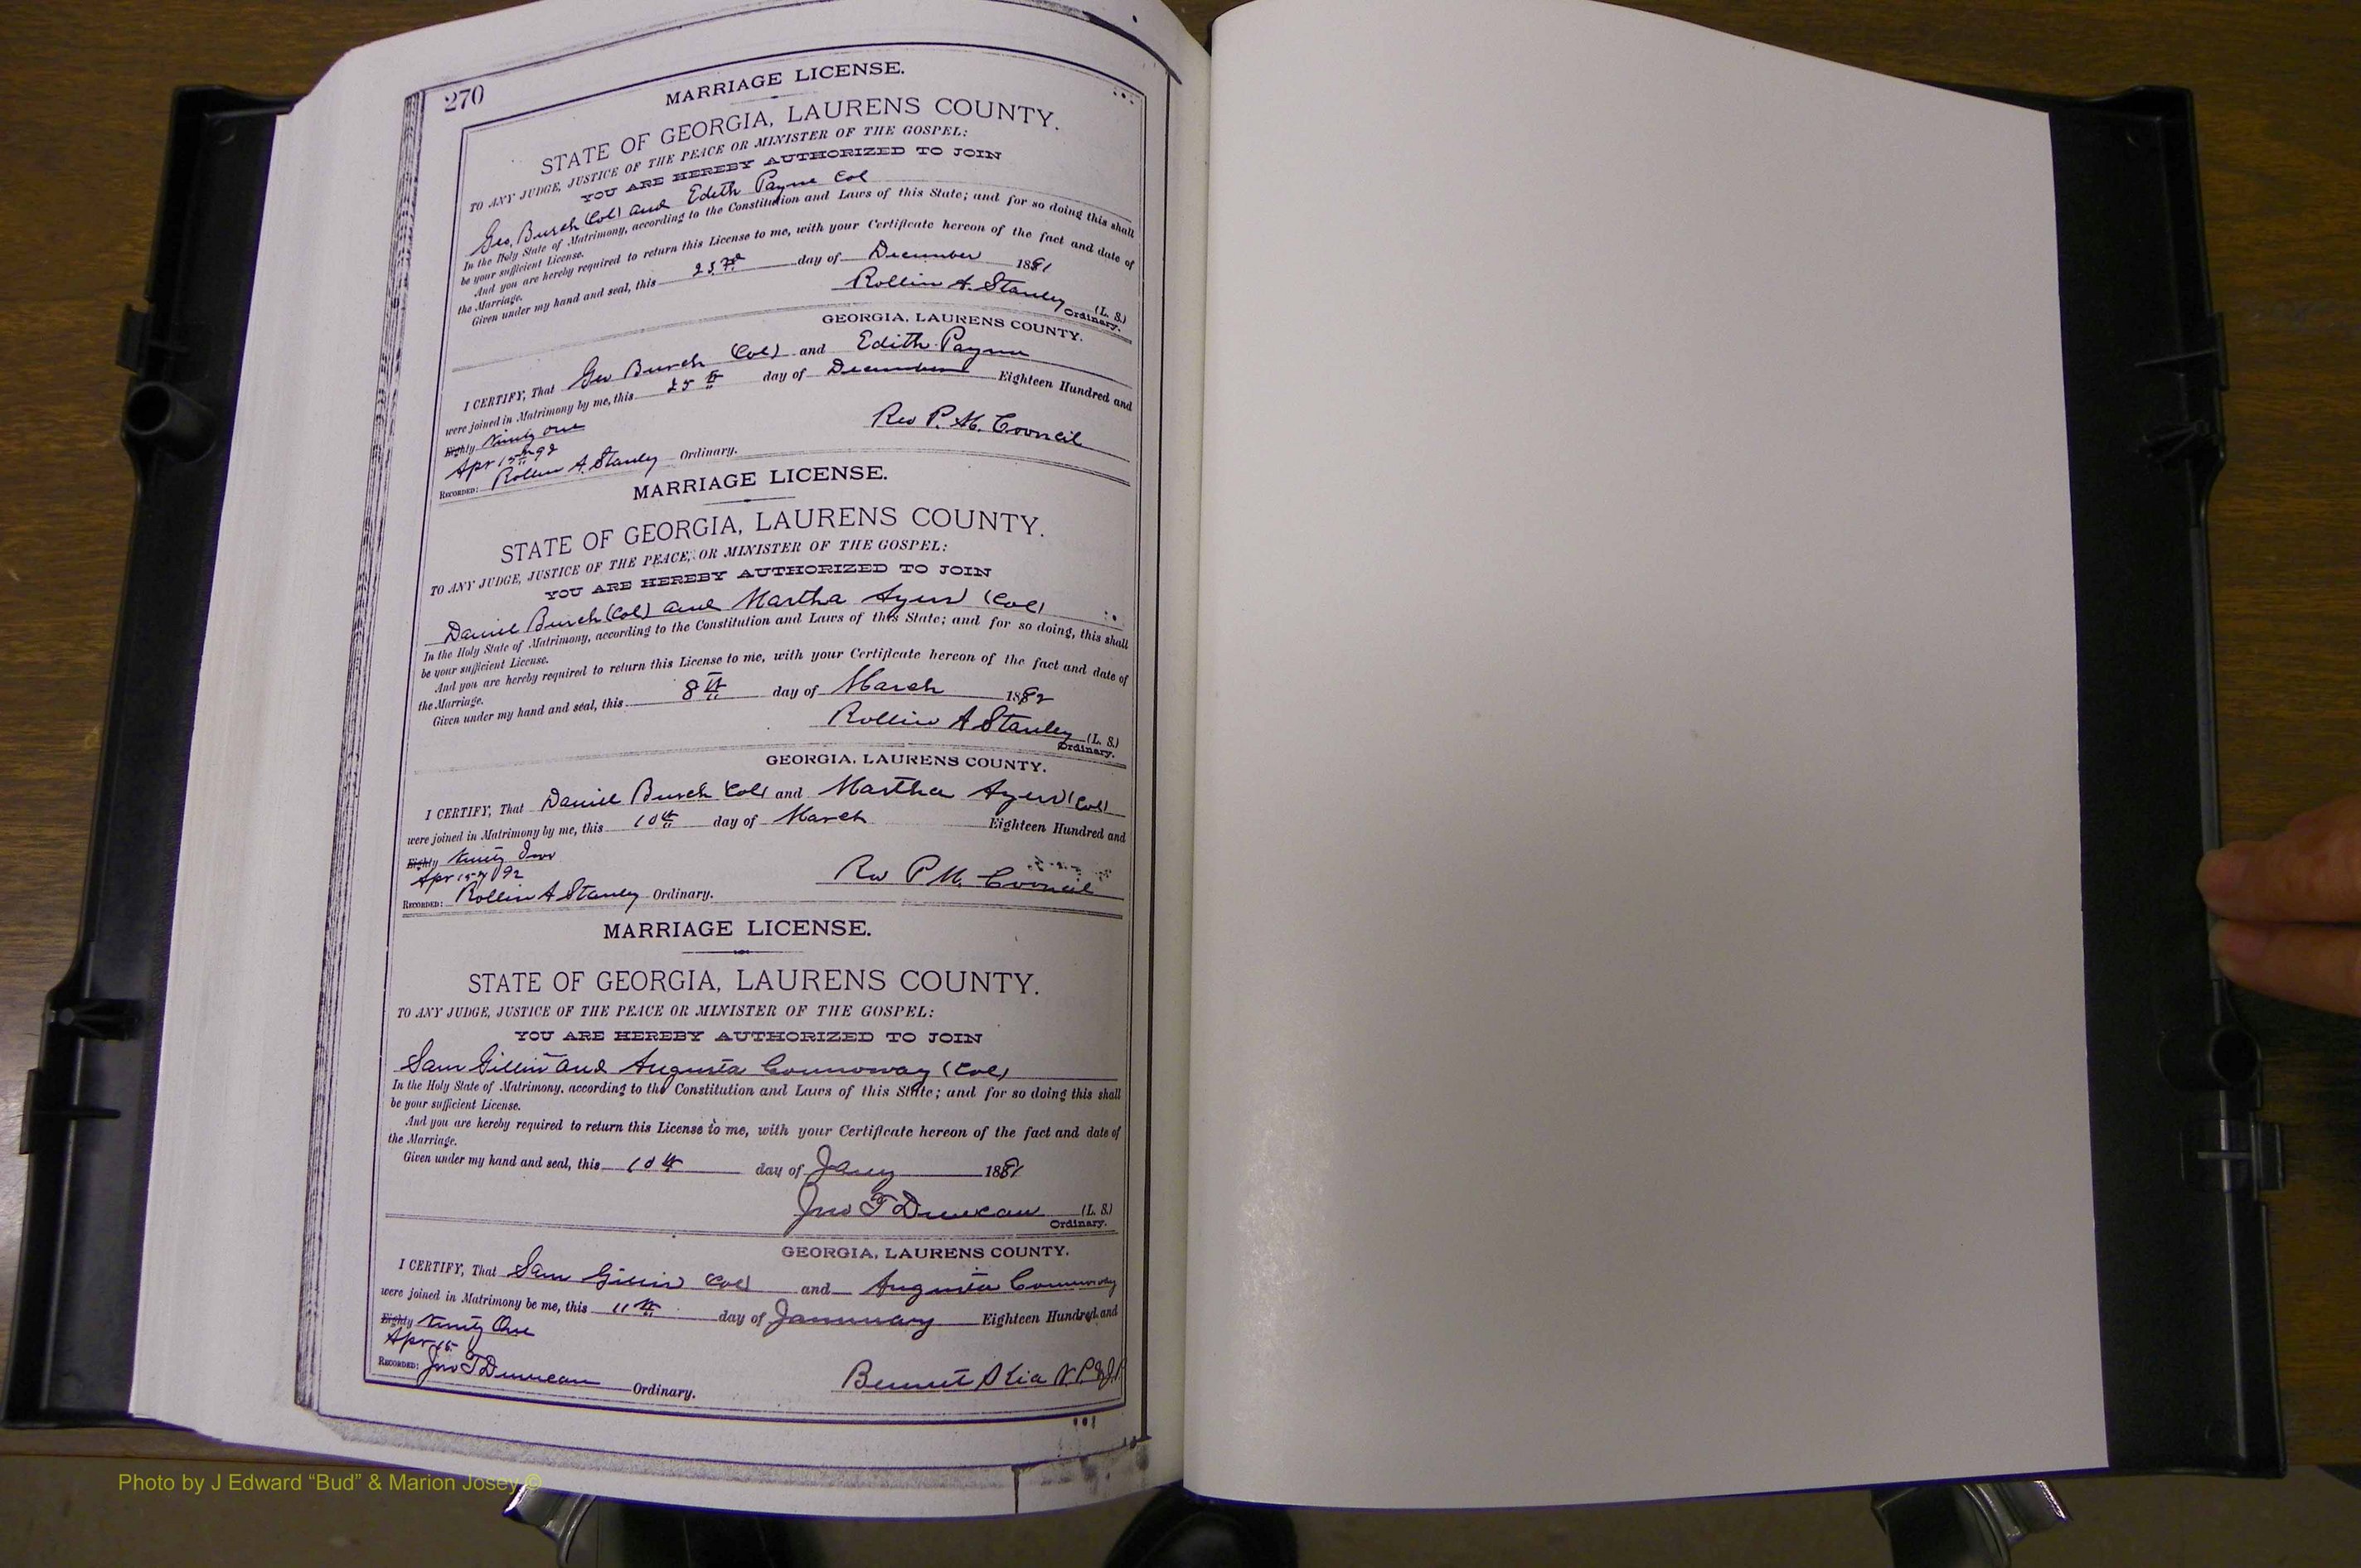 270
MARRIAGE LICENSE.
STATE OF GEORGIA, LAURENS COUNTY.
TO ANY JUDGE, JUSTICE OF THE PEACE OR MINISTER OF THE GOSPEL:
YOU ARE HEREBY AUTHORIZED TO JOIN
Geo. Burch (Col) and Edith Payne Col
In the Holy State of Matrimony, according to the Constitution and Laws of this State; and for so doing this shall
be your sufficient License.
And you are hereby required to return this License to me, with your Certificate hereon of the fact and date of
the Marriage.
Given under my hand and seal, this 23rd day of December 1891
Rollin A. Stanley (L. S.)
Ordinary.
GEORGIA, LAURENS COUNTY.
I CERTIFY, That Geo Burch (Col) and Edith Payne
were joined in Matrimony by me, this 25th day of December Eighteen Hundred and
Eighty Ninety One
Rev P. M. Council
Apr 15th 92
RECORDED: Rollin A. Stanley Ordinary.
MARRIAGE LICENSE.
STATE OF GEORGIA, LAURENS COUNTY.
TO ANY JUDGE, JUSTICE OF THE PEACE, OR MINISTER OF THE GOSPEL:
YOU ARE HEREBY AUTHORIZED TO JOIN
Daniel Burch (Col) and Martha Ayers (Col)
In the Holy State of Matrimony, according to the Constitution and Laws of this State; and for so doing, this shall
be your sufficient License.
And you are hereby required to return this License to me, with your Certificate hereon of the fact and date of
the Marriage.
Given under my hand and seal, this 8th day of March 1892
Rollin A Stanley (L. S.)
Ordinary.
GEORGIA, LAURENS COUNTY.
I CERTIFY, That Daniel Burch (Col) and Martha Ayers (Col)
were joined in Matrimony by me, this 10th day of March Eighteen Hundred and
Eighty Ninety Two
Rev P M. Council
Apr 15th 92
RECORDED: Rollin A Stanley Ordinary.
MARRIAGE LICENSE.
STATE OF GEORGIA, LAURENS COUNTY.
TO ANY JUDGE, JUSTICE OF THE PEACE OR MINISTER OF THE GOSPEL:
YOU ARE HEREBY AUTHORIZED TO JOIN
Sam and Augusta Connoway (Col)
In the Holy State of Matrimony, according to the Constitution and Laws of this State; and for so doing this shall
be your sufficient License.
And you are hereby required to return this License to me, with your Certificate hereon of the fact and date of
the Marriage.
Given under my hand and seal, this 10th day of Jany 1891
Jno T Duncan (L. S.)
Ordinary.
GEORGIA, LAURENS COUNTY.
I CERTIFY, That Sam (Col) and Augusta Connoway
were joined in Matrimony be me, this 11th day of January Eighteen Hundred and
Eighty Ninety One
Apr 15
RECORDED: Jno T Duncan Ordinary.
Bennet N.P. & J.P.
Photo by J Edward “Bud” & Marion Josey ©